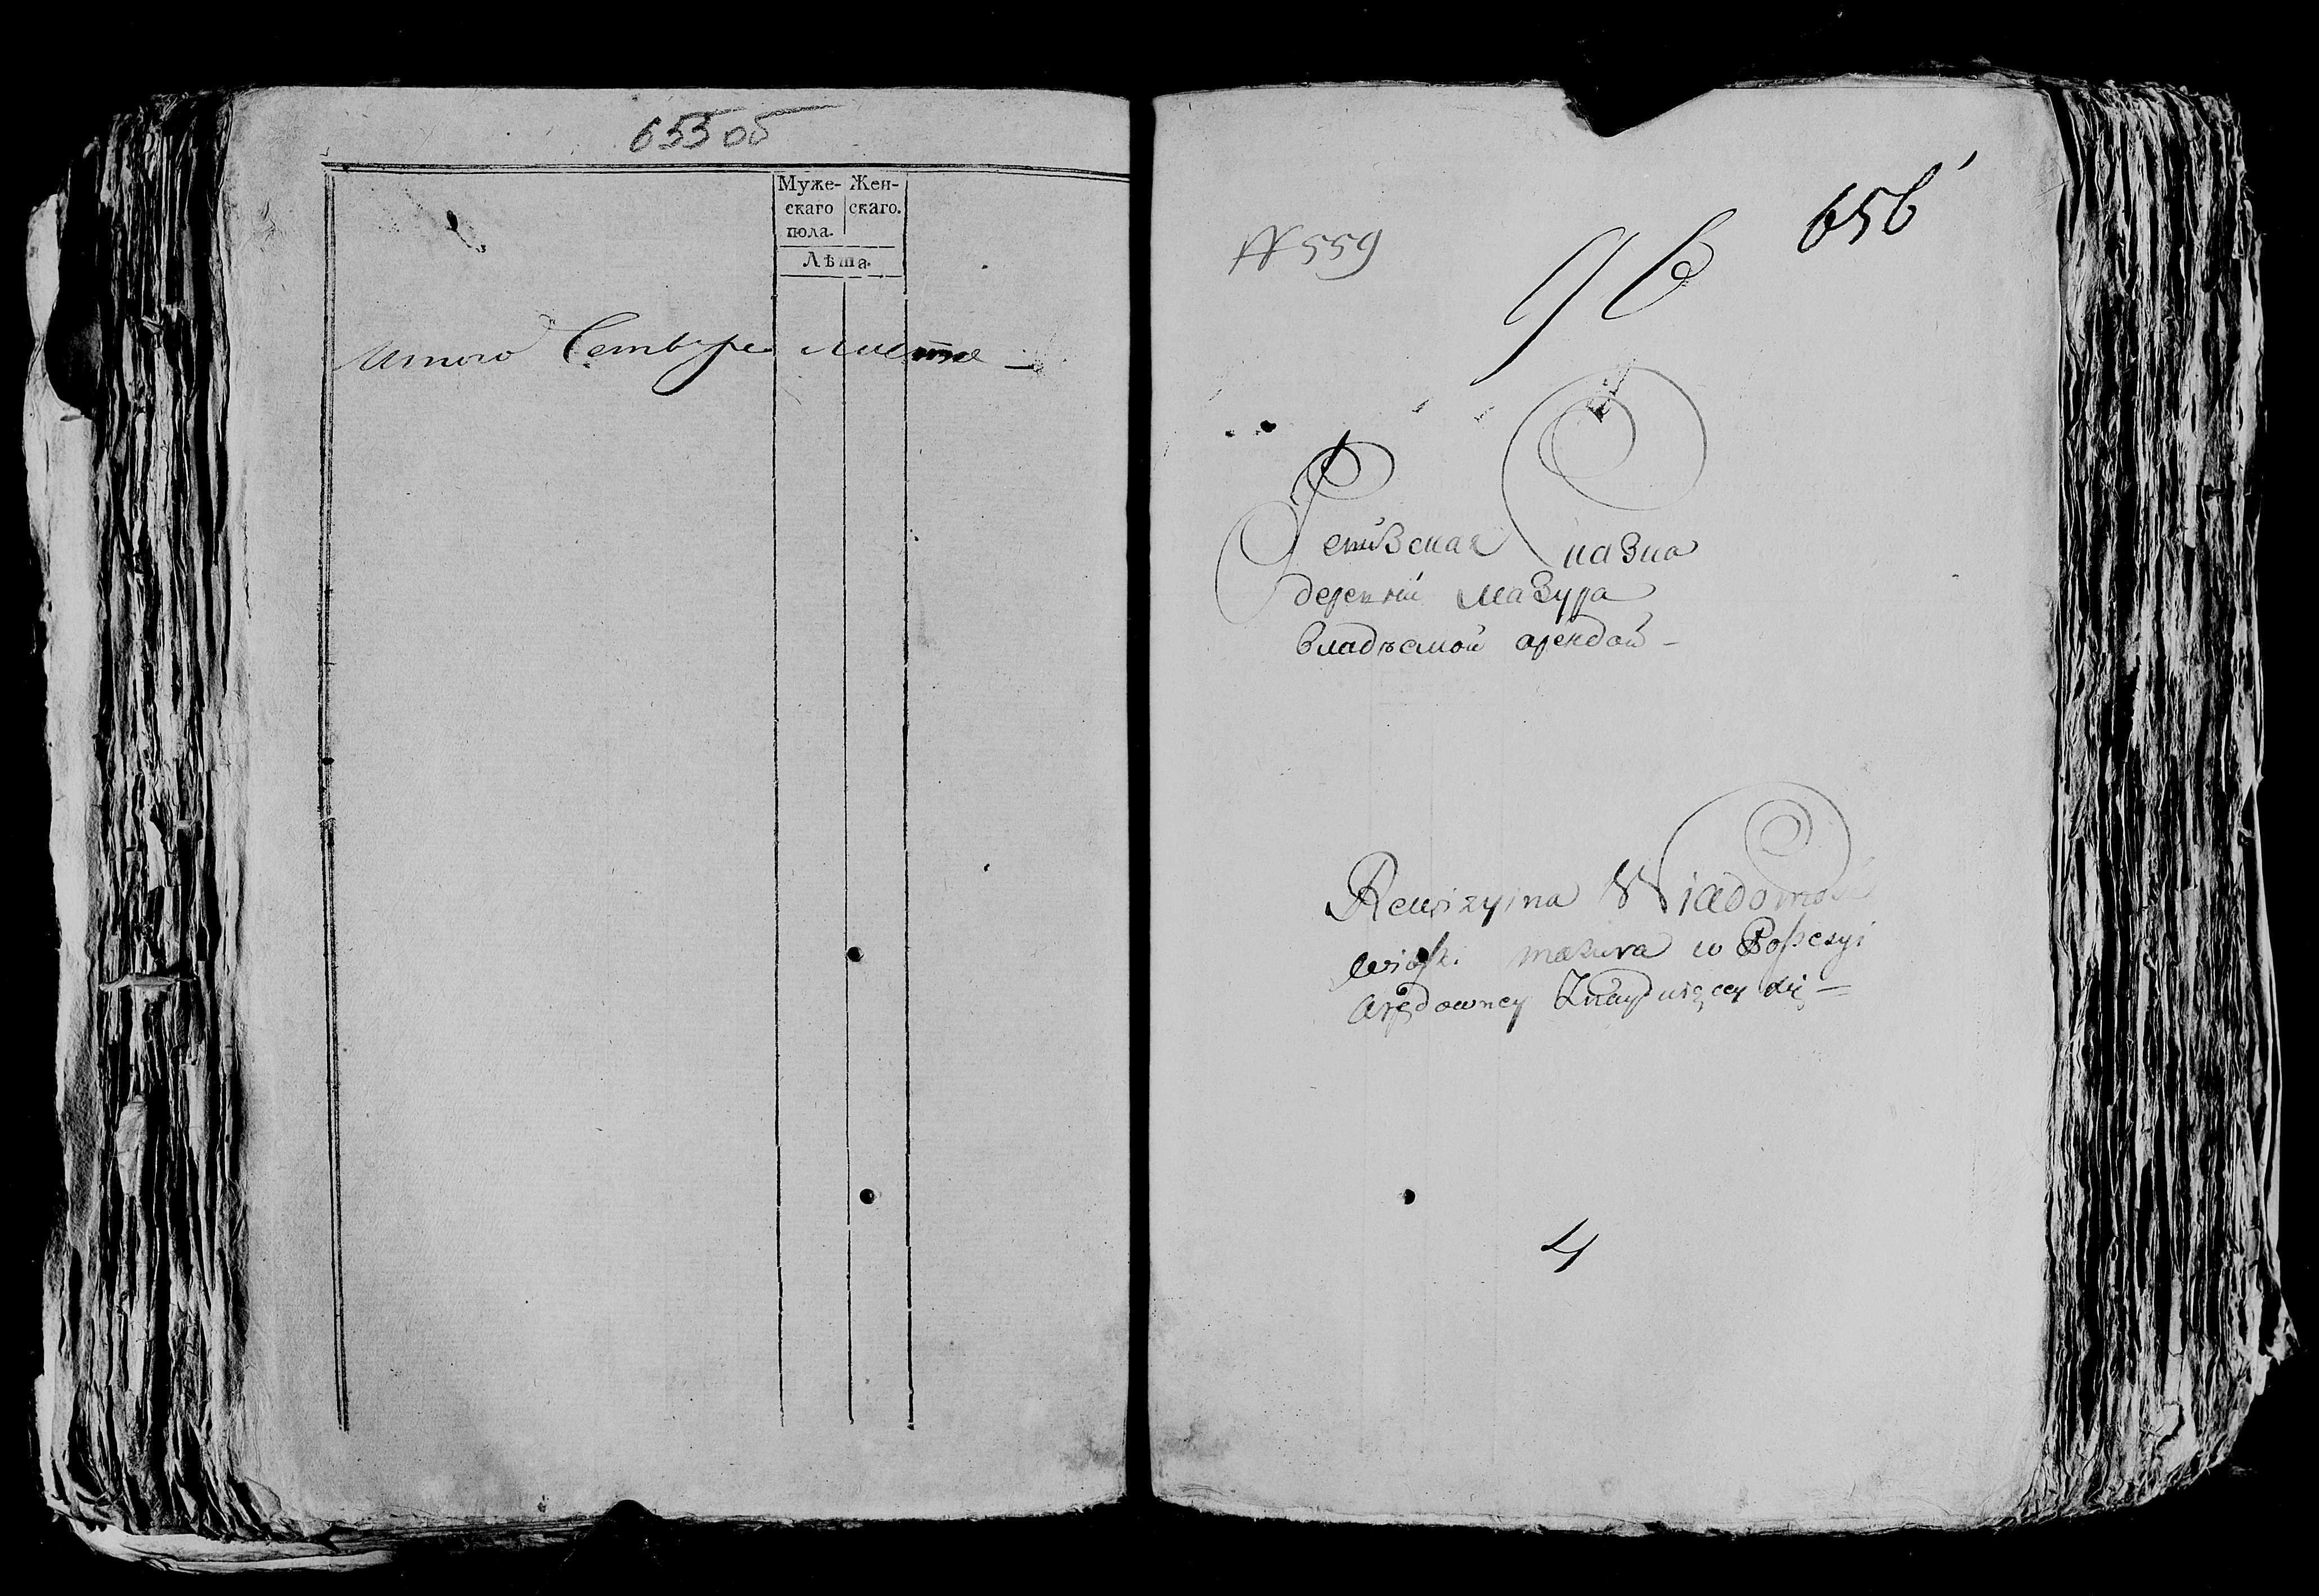 655об
Муже- Жен-
скаго скаго.
пола.
Лѣта.
Итого Четыре листа
656
№ 559
Ревизская сказка
деревни Мазура
владѣемой арендой –
Rewizyina Wiadomość
wioski Mazura w Possesyi
Arędowney Znayduiącey się
4